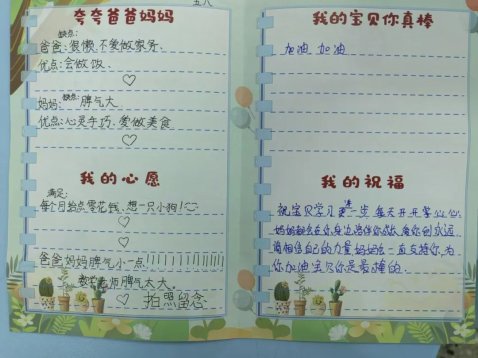 五八
夸夸爸爸妈妈
缺点:
爸爸:很懒 不爱做家务.
优点:会做饭
♡
妈妈:缺点:脾气大
优点:心灵手巧.爱做美食
♡
我的心愿
满足:
每个月给点零花钱、想一只小狗!
♡
爸爸妈妈脾气小一点!!!!!!!!!!!
数学老师脾气大大.
♡ 拍照留念
我的宝贝你真棒
加油 加油
我的祝福
祝宝贝学习更进一步 每天开开心心
妈妈都会在你身边陪伴你成长,
要相信自己的力量妈妈会一直支持你,为
你加油宝贝你是最棒的.